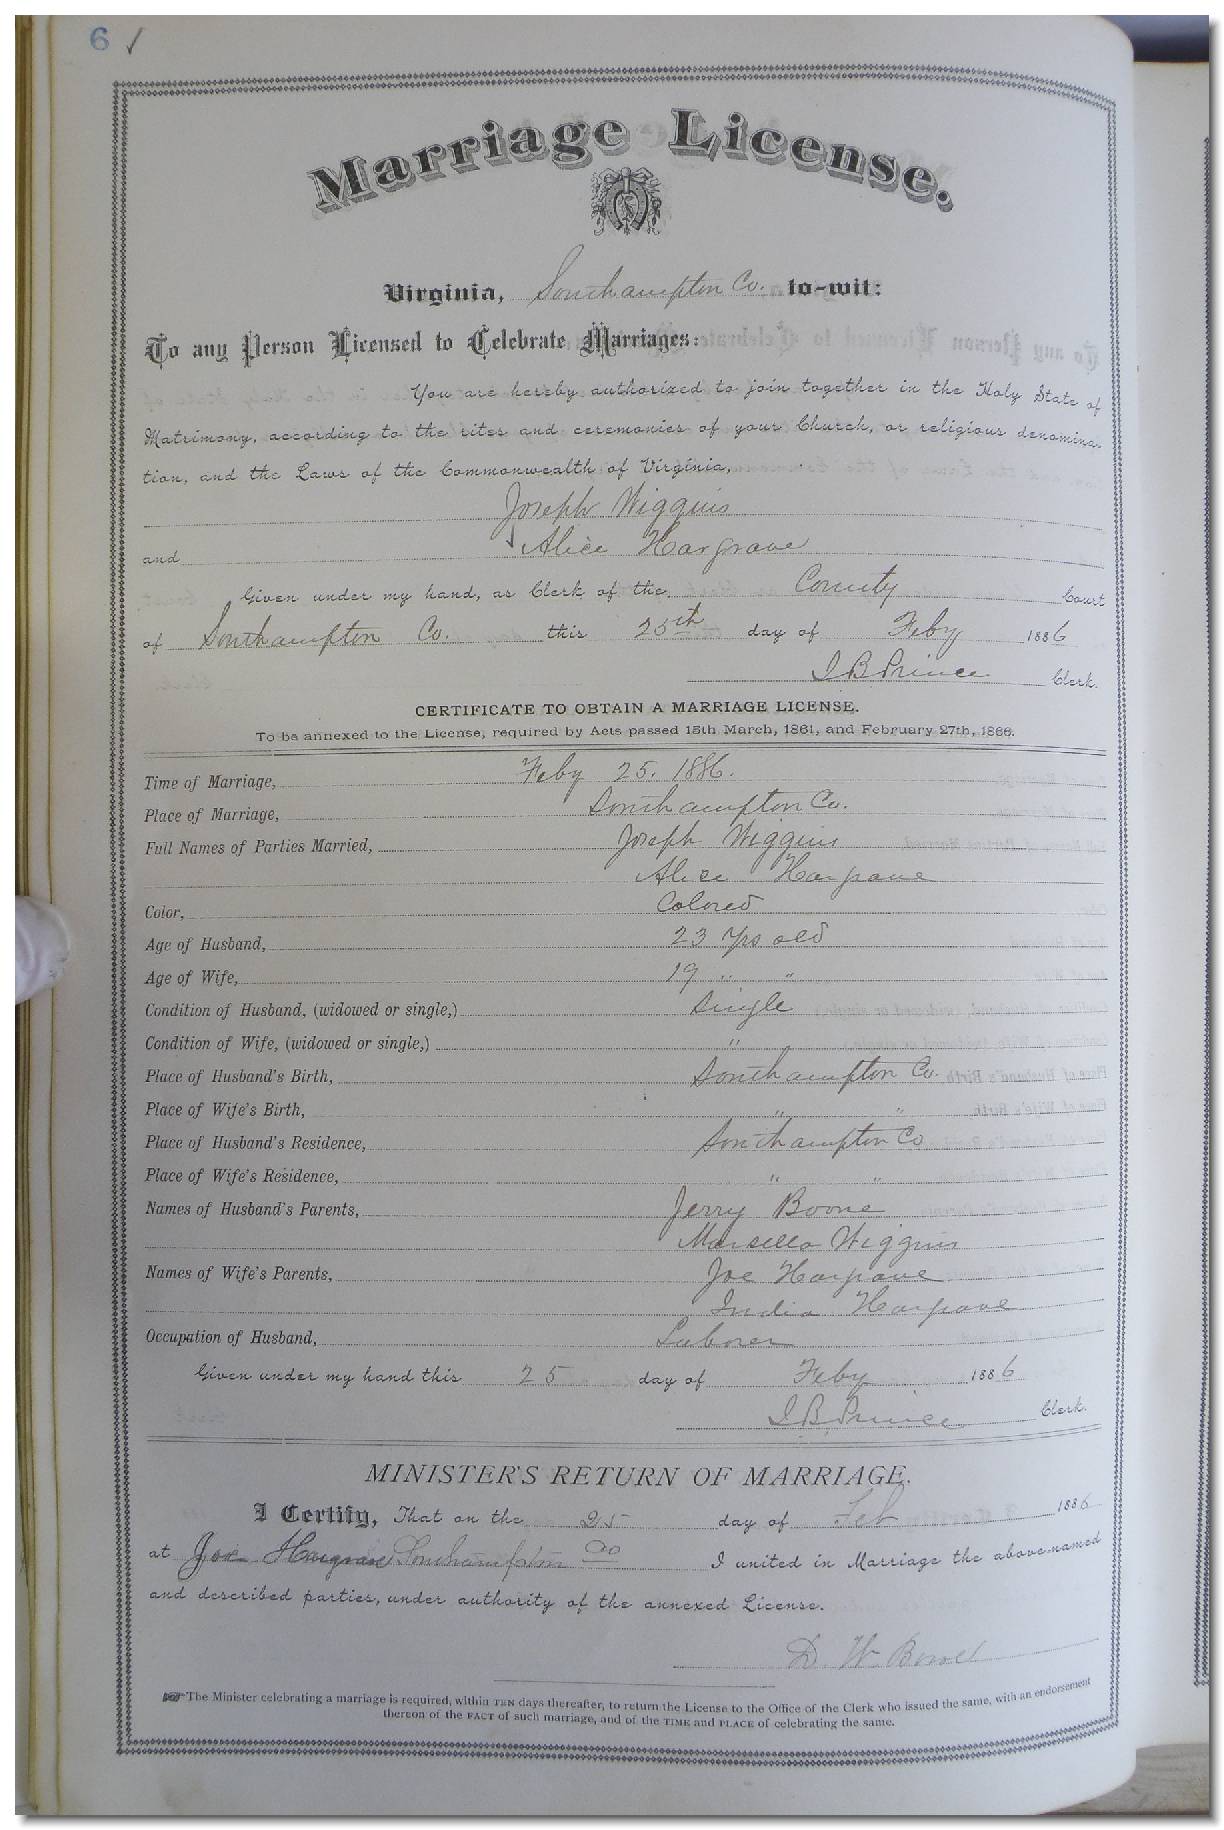 6 ✓
Marriage License.
Virginia, Southampton Co. to-wit:
To any Person Licensed to Celebrate Marriages:
You are hereby authorized to join together in the Holy State of
Matrimony, according to the rites and ceremonies of your Church, or religious denomina-
tion, and the Laws of the Commonwealth of Virginia,
Joseph Wiggins
and Alice Hargrave
Given under my hand, as Clerk of the County Court
of Southampton Co. this 25th day of Feby 1886
I B Prince Clerk.
CERTIFICATE TO OBTAIN A MARRIAGE LICENSE.
To be annexed to the License, required by Acts passed 15th March, 1861, and February 27th, 1866.
Time of Marriage, Feby 25. 1886.
Place of Marriage, Southampton Co.
Full Names of Parties Married, Joseph Wiggins
Alice Hargrave
Color, Colored
Age of Husband, 23 yrs old
Age of Wife, 19 " "
Condition of Husband, (widowed or single,) Single
Condition of Wife, (widowed or single,) "
Place of Husband's Birth, Southampton Co.
Place of Wife's Birth, " "
Place of Husband's Residence, Southampton Co
Place of Wife's Residence, " "
Names of Husband's Parents, Jerry Boone
Marcella Wiggins
Names of Wife's Parents, Joe Hargrave
India Hargrave
Occupation of Husband, Laborer
Given under my hand this 25 day of Feby 1886
I B Prince Clerk.
MINISTER'S RETURN OF MARRIAGE.
I Certify, That on the 25 day of Feb 1886
at Joe Hargrave Southampton Co I united in Marriage the above-named
and described parties, under authority of the annexed License.
D. W.
The Minister celebrating a marriage is required, within TEN days thereafter, to return the License to the Office of the Clerk who issued the same, with an endorsement
thereon of the FACT of such marriage, and of the TIME and PLACE of celebrating the same.